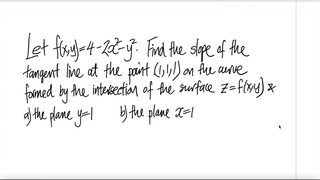 Let f(x,y)=4-2x²-y². Find the slope of the
tangent line at the point (1,1,1) on the curve
formed by the intersection of the surface z=f(x,y) &
a) the plane y=1 b) the plane x=1